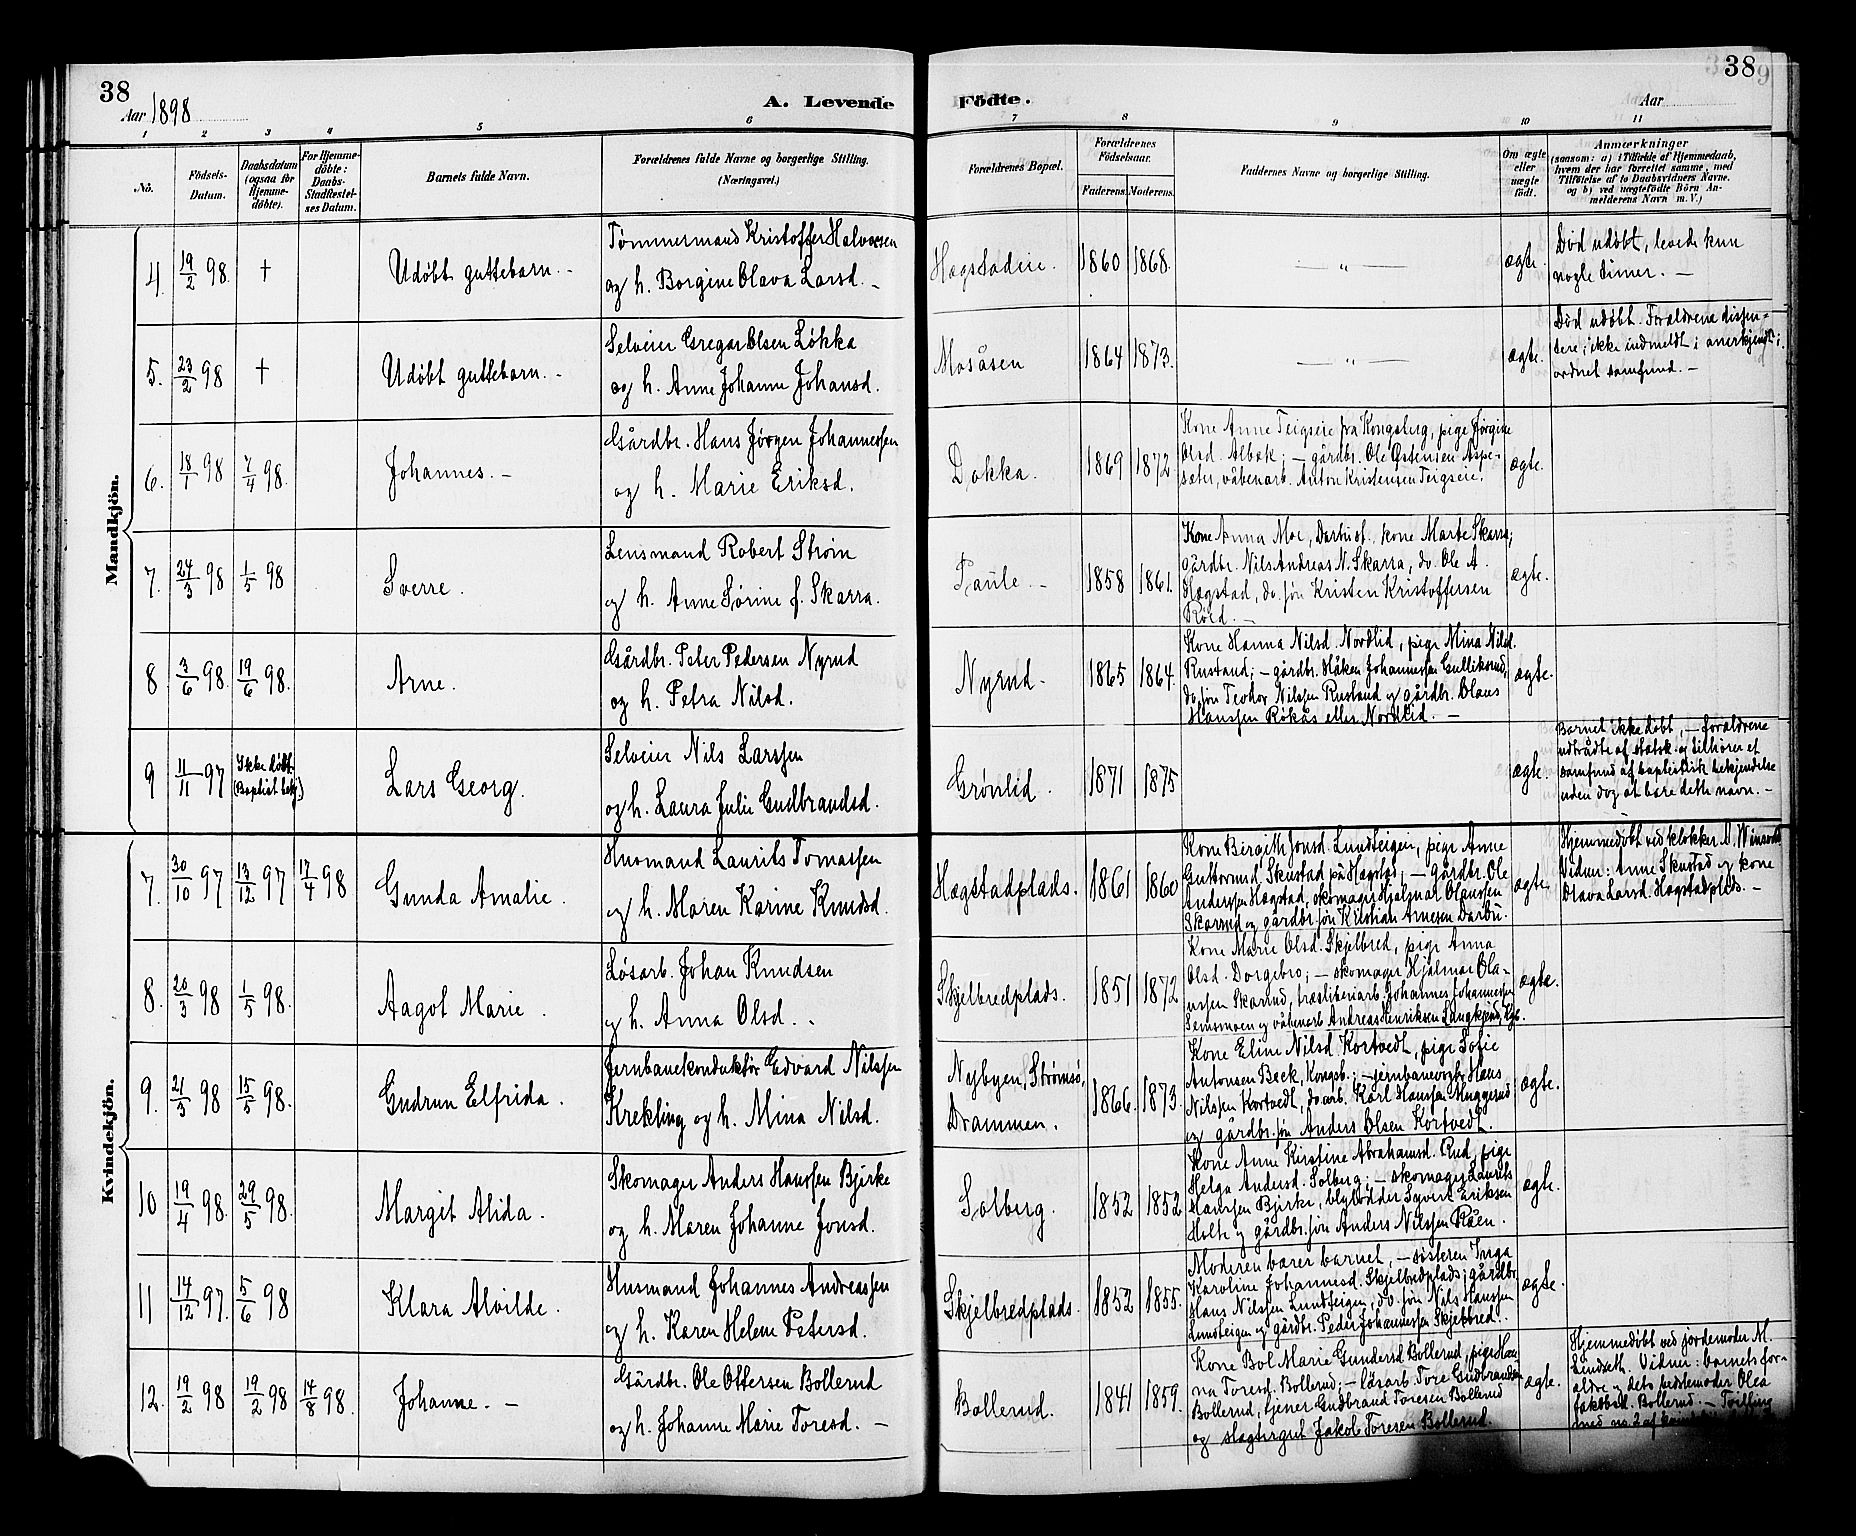 38
Aar 1898
A. Levende Fødte.
Aar
38
1 2 3 4 5 6 7 8 9 10 11
No.
Fødsels-Datum.
Daabsdatum (ogsaa for Hjemme-døbte).
For Hjemme-døbte: Daabs-Stadfæstel-ses Datum.
Barnets fulde Navn.
Forældrenes fulde Navne og borgerlige Stilling. (Næringsvei.)
Forældrenes Bopæl.
Forældrenes Fødselsaar.
Faderens. Moderens.
Faddernes Navne og borgerlige Stilling.
Om ægte eller uægte født.
Anmærkninger
(saasom: a) i Tilfælde af Hjemmedaab, hvem der har forrettet samme, med Tilføielse af to Daabsvidners Navne. og b) ved uægtefødte Børn Anmelderens Navn m. V.)
Mandkjön.
4. 19/2 98. † Udøbt guttebarn. -
Tømmermand Kristoffer Halvorsen
og h. Borgine Olava Larsd. -
Hægstadeie. 1860 1868. — " — ægte.
Død udøbt, levede kun
nogle timer. -
5. 23/2 98 † Udøbt guttebarn. -
Selveier Gregar Olsen Løkka
og h. Anne Johanne Johansd.
Mosåsen 1864 1873. — " — ægte.
Død udøbt. Forældrene dissen-
tere; ikke indmeldt i anerkjendt;
ordnet samfund. -
6. 18/1 98 7/4 98. Johannes. -
Gårdbr. Hans Jørgen Johannessen
og h. Marie Eriksd.
Dokka. 1869 1872
Kone Anne Teigseie fra Kongsberg, pige Jørgine
Olsd. Albæk; - gårdbr. Ole Østensen Aspe-
sæter, våbenarb. Anton Kristensen Teigseie.
ægte.
7. 24/3 98 1/5 98 Sverre.
Lensmand Robert Strøm
og h. Anne Sørine f. Skarra.
Paule. - 1858 1861.
Kone Anna Moe, Darbu st., kone Marte Skarra;
gårdbr. Nils Andreas N. Skarra, do. Ole A.
Hægstad, do. søn Kristen Kristoffersen
Røed. -
ægte.
8 3/6 98. 19/6 98. Arne.
Gårdbr. Peter Pedersen Nyrud
og h. Petra Nilsd.
Nyrud. 1865 1864.
Kone Hanna Nilsd. Nordlid, pige Mina Nilsd.
Rustand; - gårdbr. Håken Johannessen Gulliksrud,
do. søn Teodor Nilssen Rustand og gårdbr. Olaus
Hanssen Røkås eller Nordlid. -
ægte.
9 11/11 97 Ikke døbt. (Baptist bekj.) Lars Georg.
Selveier Nils Larssen
og h. Laura Julie Gudbrandsd.
Grønlid. 1871 1875 ægte.
Barnet ikke døbt, - forældrene
udtrådte af statsk. og tilhører et
samfund af baptistisk bekjendelse
uden dog at bære dette navn. -
Kvindekjön.
7. 30/10 97 13/12 97 17/4 98 Gunda Amalie.
Husmand Laurits Tomassen
og h. Maren Karine Knudsd.
Hægstadplads. 1861 1860
Kone Birgith Jonsd. Lundteigen, pige Anne
Guttormsd. Skustad på Hægstad; - gårdbr. Ole
Anderssen Hægstad, skomager Hjalmar Olaussen
Skarrud og gårdbr. søn Kristian Arnesen Darbu.
ægte.
Hjemmedøbt ved klokker A.
Vidner: Anne Skustad og kone
Olava Larsd. Hægstadplds. -
8. 20/3 98 1/5 98. Aagot Marie.
Løsarb. Johan Knudsen
og h. Anna Olsd. -
Skjelbredplads. 1851 1872
Kone Marie Olsd. Skjelbred, pige Anna
Olsd. Dorgebro; - skomager Hjalmar Ola-
ussen Skarrud, træsliberiarb. Johannes Johannessen
Semsmoen og våbenarb. Andreas Henriksen Langkjend, Kgb.
ægte.
9. 21/3 98 15/5 98. Gudrun Elfrida.
Jernbanekonduktør Edvard Nilssen
Krekling og h. Mina Nilsd.
Nybyen, Strømsø, Drammen. 1866. 1873.
Kone Eline Nilsd. Kortvedt, pige Sofie
Antonsen Bæck, Kongsb.; - jernbanevogtr. Hans
Nilssen Kortvedt, do. arb. Karl Hanssen Muggerud
og gårdbr. søn Anders Olsen Kortvedt.
ægte.
10 19/4 98. 29/5 98. Margit Alida.
Skomager Anders Hanssen Bjerke
og h. Maren Johanne Jonsd.
Solberg. 1852 1852
Kone Anne Kirstine Abrahamsd. Rud, pige
Helga Andersd. Solberg; - skomager Laurits
Hanssen Bjerke, blylodder Syvert Eriksen
Holte og gårdbr. søn Anders Nilssen Råen.
ægte.
11 14/12 97. 5/6 98 Klara Alvilde.
Husmand Johannes Andreassen
og h. Karen Helene Petersd.
Skjelbredplads. 1852 1855.
Moderen bærer barnet, - søsteren Inga
Karoline Johannesd. Skjelbredplads; gårdbr.
Hans Nilssen Lundteigen, do. søn Nils Hanssen
Lundteigen og gårdbr. Peder Johannessen Skjelbred.
ægte.
12. 19/2 98 19/2 98 14/8 98. Johanne. -
Gårdbr. Ole Ottersen Bollerud
og h. Johanne Marie Toresd. -
Bollerud. 1841 1859.
Kone Bol Marie Gundersd. Bollerud, pige Han-
na Toresd. Bollerud; - løsarb. Tore Gudbrandsen
Bollerud, tjener Gudbrand Toresen Bollerud
og slagtergut Jakob Toresen Bollerud.
ægte.
Hjemmedøbt ved jordemoder M.
Vidner: barnets for-
ældre og dets bedstemoder Olea
Jakobsd. Bollerud. - Tvilling
med no. 2 af